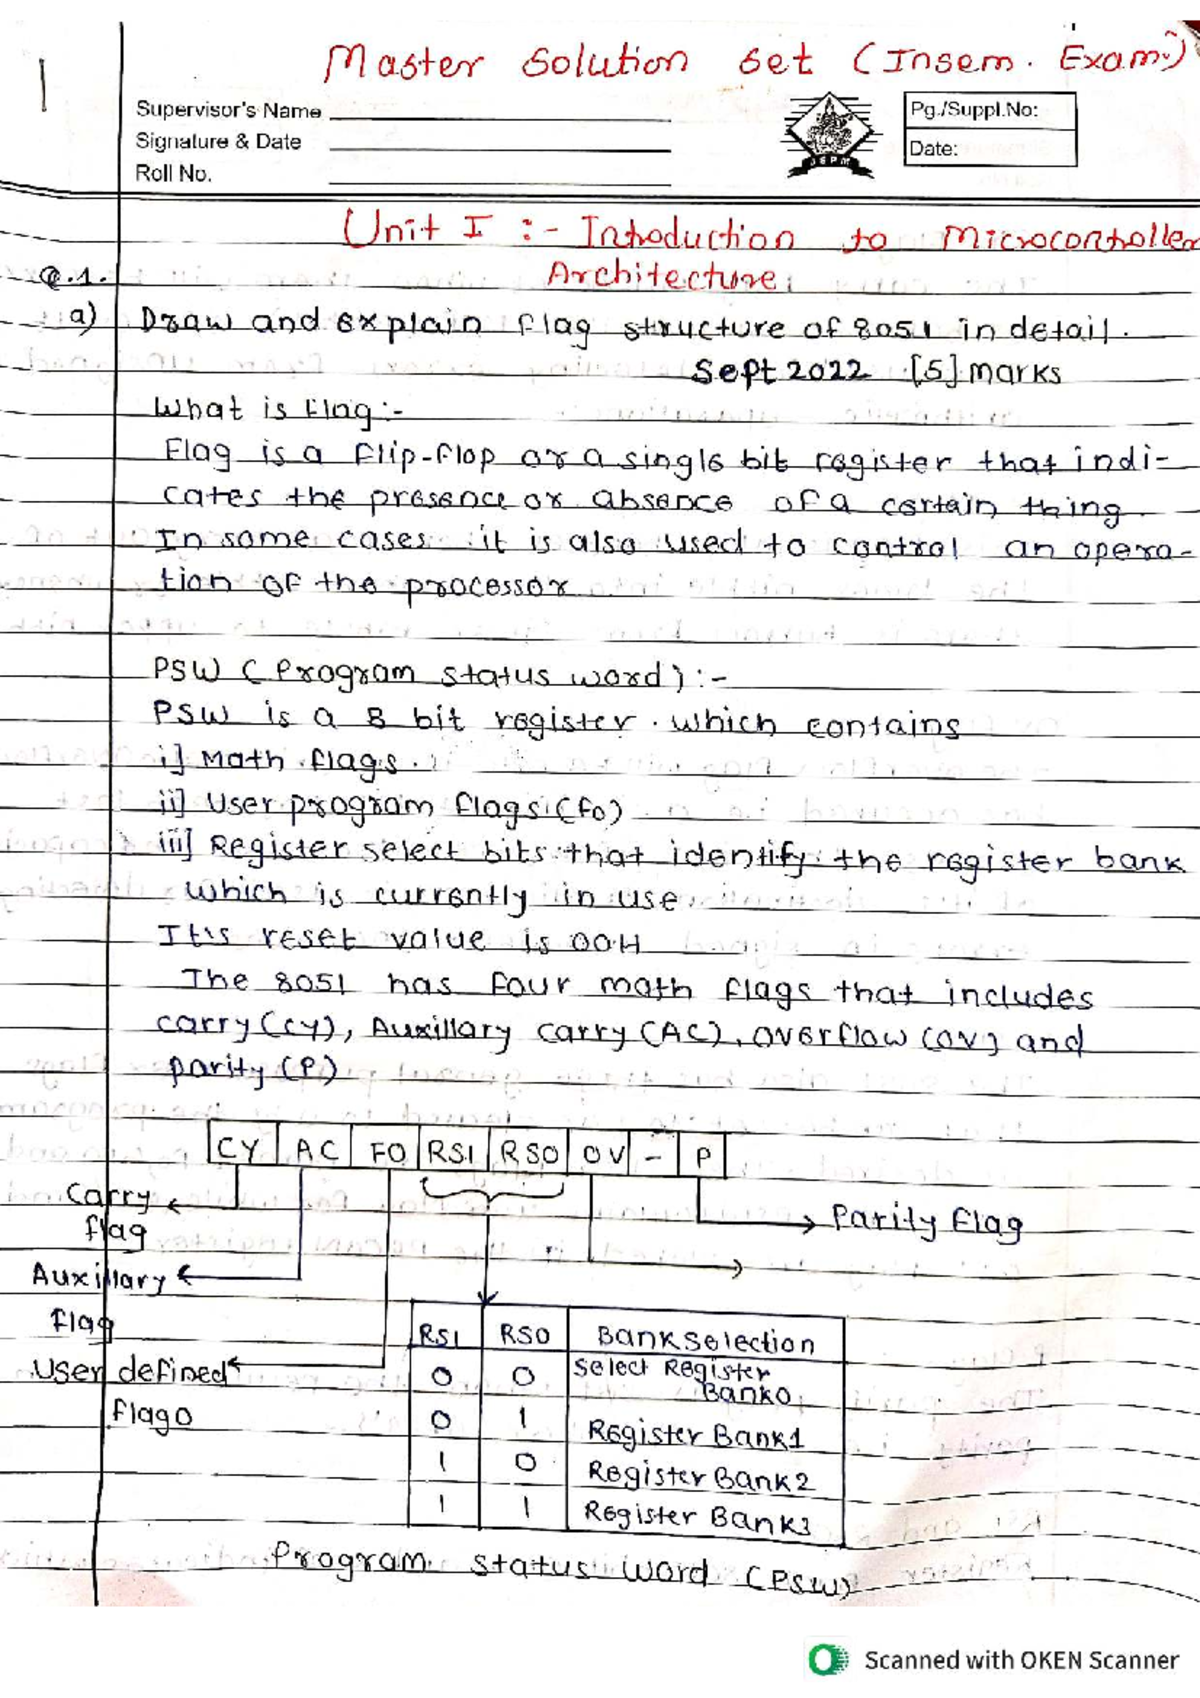 Master Solution Set (Insem. Exam.)
1
Supervisor's Name
Signature & Date
Roll No.
JSPM
Pg./Suppl.No:
Date:
Unit I :- Introduction to Microcontroller
Architecture
Q.1.
a) Draw and explain flag structure of 8051 in detail.
Sept 2022 [5] marks
What is Flag:-
Flag is a flip-flop or a single bit register that indi-
cates the presence or absence of a certain thing.
In some cases it is also used to control an opera-
tion of the processor
PSW (Program status word) :-
PSW is a 8 bit register which contains
i] Math flags.
ii] User program flags (F0)
iii] Register select bits that identify the register bank
which is currently in use
It's reset value is 00H
The 8051 has four math flags that includes
carry (CY), Auxillary carry (AC), overflow (OV) and
parity (P)
CY AC F0 RS1 RS0 OV - P
Carry
flag
Parity Flag
Auxillary
flag
User defined
flag0
RS1 RS0 Bank Selection
0 0 Select Register
Bank0
0 1 Register Bank1
1 0 Register Bank2
1 1 Register Bank3
Program status word (PSW)
Scanned with OKEN Scanner